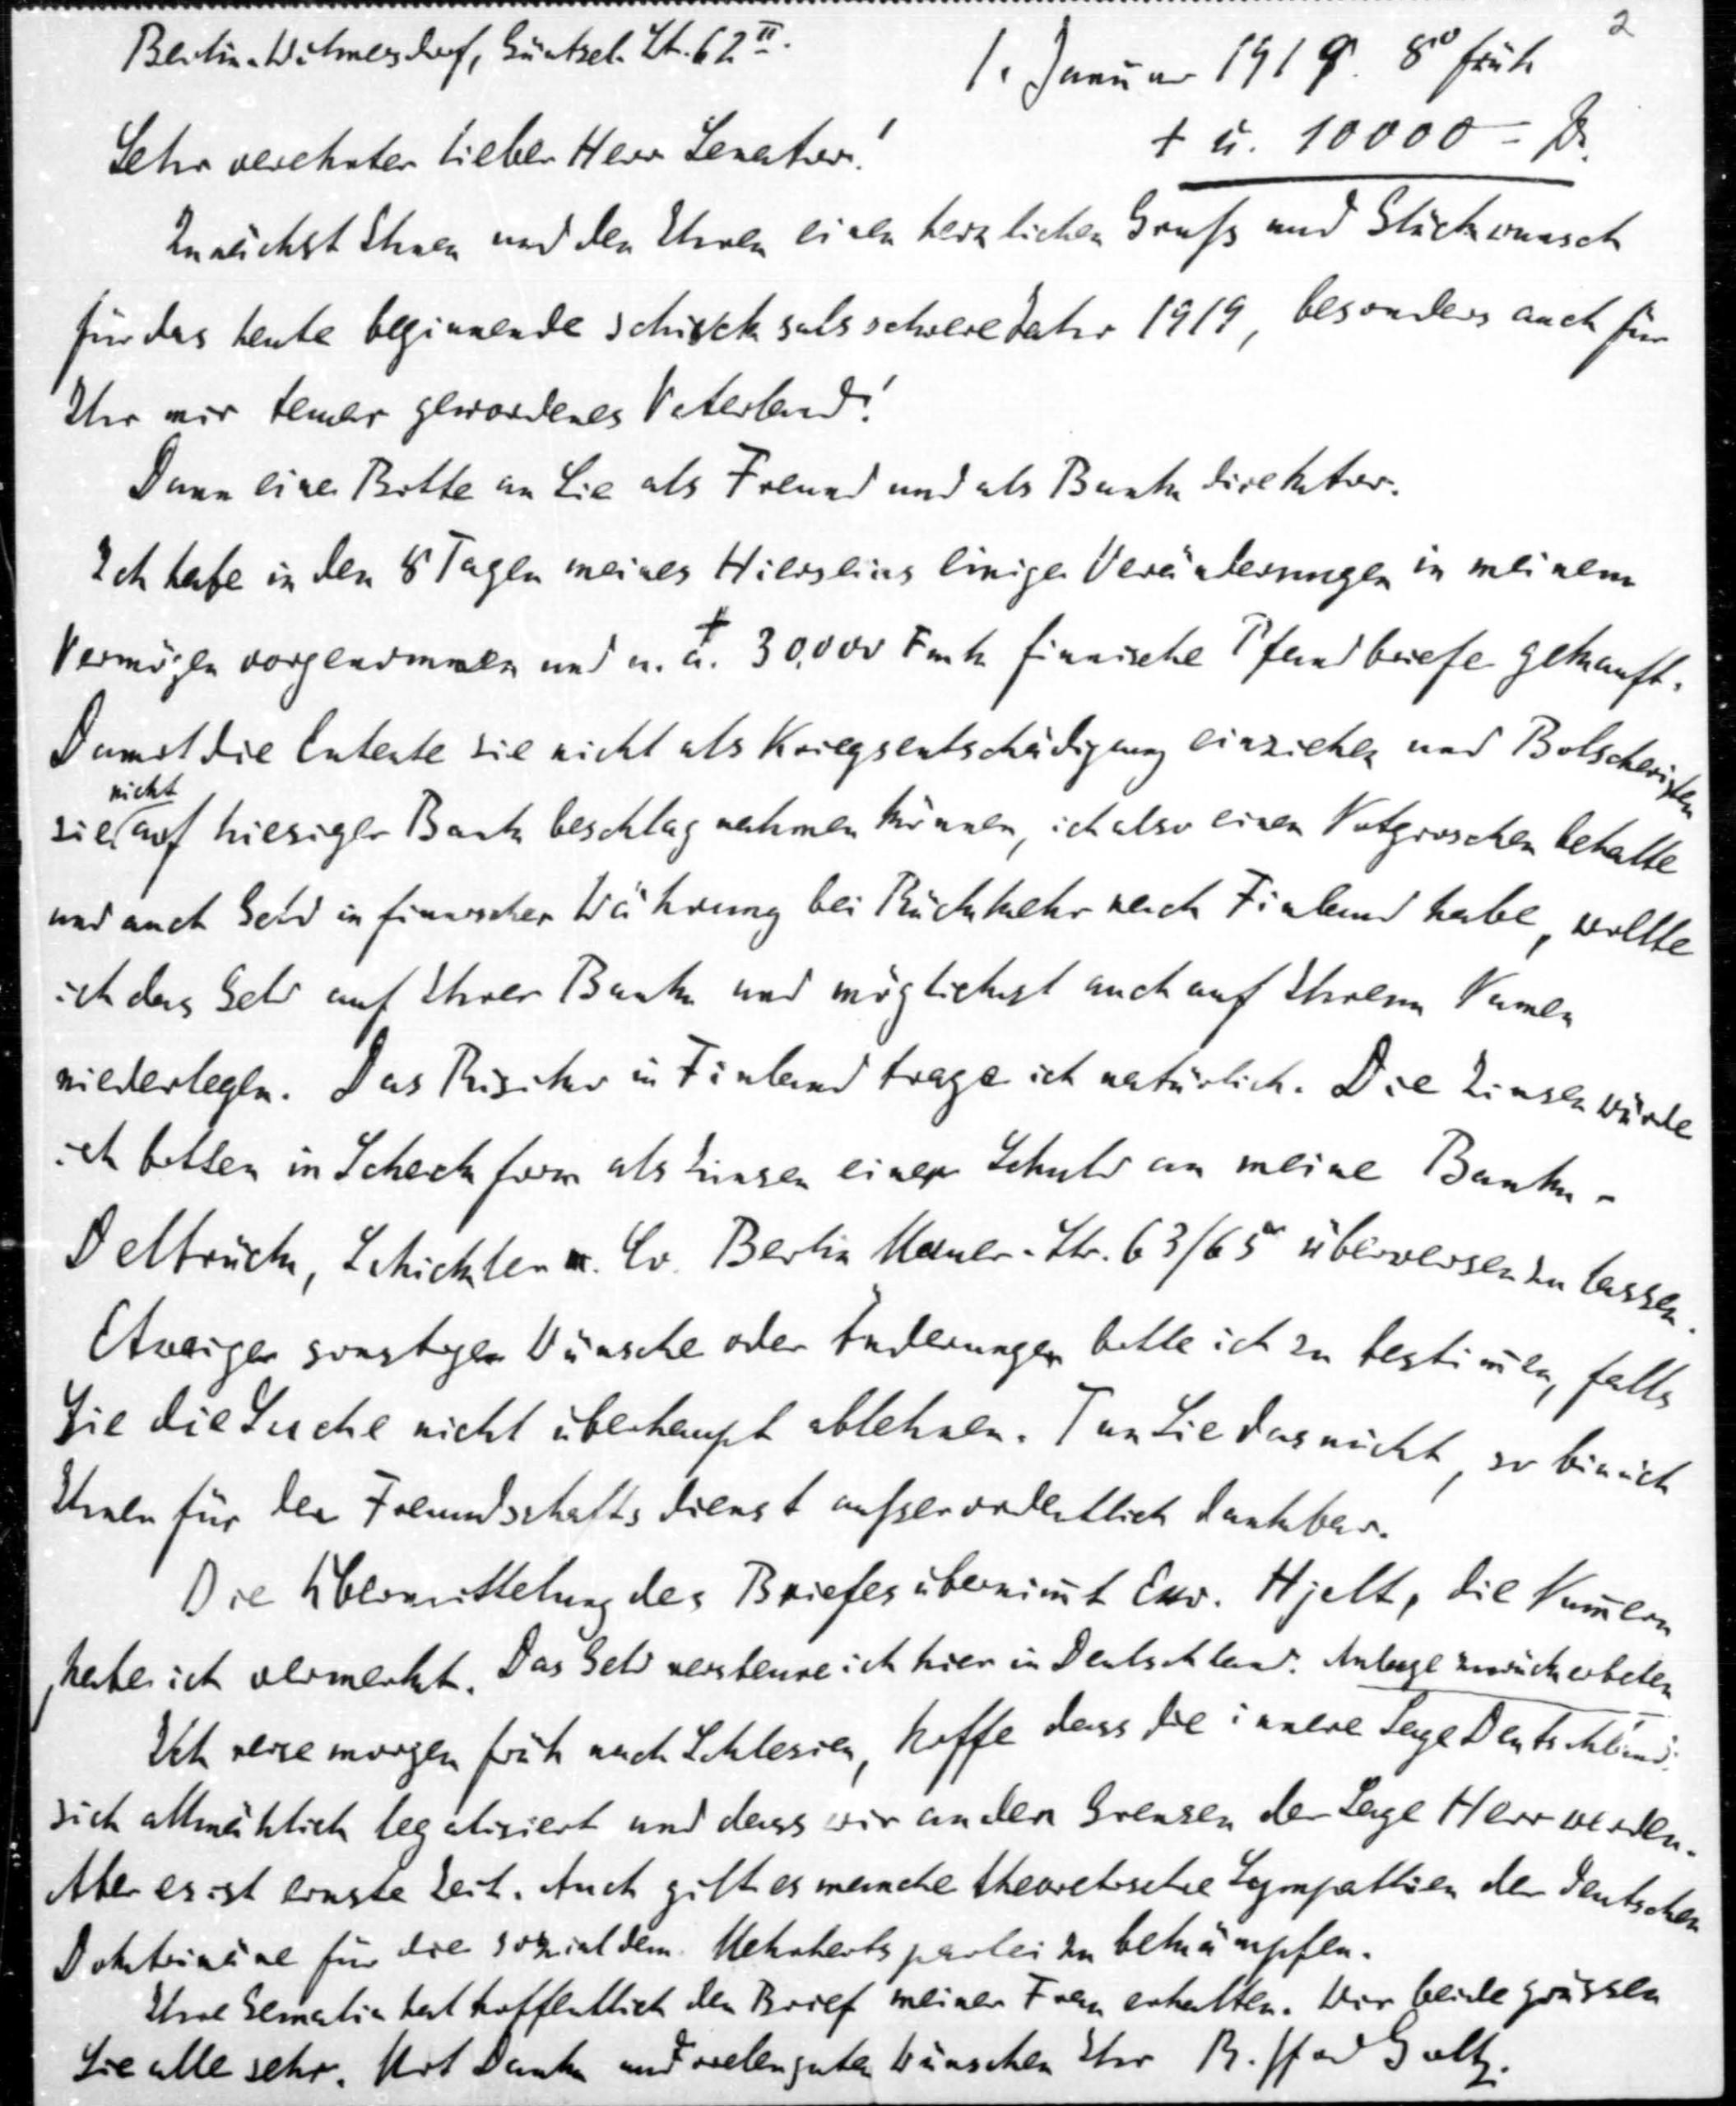 2
Berlin-Wilmersdorf, Güntzel-Str. 62 II.
1. Januar 1919. 8° früh
Sehr verehrter lieber Herr Senator!
+ u. 10000 =
Zunächst Ihnen und den Ihren einen herzlichen Gruß und Glückwunsch
für das heute beginnende schicksalsschwere Jahr 1919, besonders auch für
Ihr mir teuer gewordenes Vaterland!
Dann eine Bitte an Sie als Freund und als Bankdirektor.
Ich habe in den 8 Tagen meines Hierseins einige Veränderungen in meinem
Vermögen vorgenommen und u. a. + 30.000 Fmk finnische Pfandbriefe gekauft.
Damit die Entente sie nicht als Kriegsentschädigung einziehen und Bolschewisten
sie nicht auf hiesiger Bank beschlagnahmen können, ich also einen Notgroschen behalte
und auch Geld in finnischer Währung bei Rückkehr nach Finland habe, wollte
ich das Geld auf Ihrer Bank und möglichst auch auf Ihrem Namen
niederlegen. Das Risiko in Finland trage ich natürlich. Die Zinsen würde
ich bitten in Scheckform als Zinsen einer Schuld an meine Bank -
Delbrück, Schickler u. Co. Berlin Mauer-Str. 63/65 überweisen zu lassen.
Etwaige sonstige Wünsche oder Änderungen bitte ich zu bestim̄en, falls
Sie die Sache nicht überhaupt ablehnen. Tun Sie das nicht, so bin ich
Ihnen für den Freundschaftsdienst außerordentlich dankbar.
Die Übermittelung des Briefes übernim̄t Exz. Hjelt, die Num̄ern
habe ich vermerkt. Das Geld versteure ich hier in Deutschland. Anlage zurückerbeten
Ich reise morgen früh nach Schlesien, hoffe dass die innere Lage Deutschlands
sich allmählich legalisiert und dass wir an den Grenzen der Lage Herr werden.
Aber es ist ernste Zeit. Auch gilt es manche theoretische Sympathien der deutschen
Doktrinäre für die sozialdem. Mehrheitspartei zu bekämpfen.
Ihre Gemalin hat hoffentlich den Brief meiner Frau erhalten. Wir beide grüssen
Sie alle sehr. Mit Dank und vielen guten Wünschen Ihr R. Gf v d Goltz.